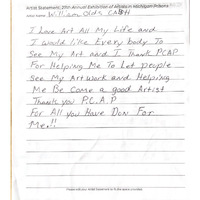 Artist Statement, 20th Annual Exhibition of Artists in Michigan Prisons
Name: William
I Love Art All My Life and
I would like Every body To
See My Art and I Thank PCAP
For Helping Me To Let people
See My Art work and Helping
Me Be Come a good Artist
Thank you P.C.A.P
For All you Have Don For
Me!!